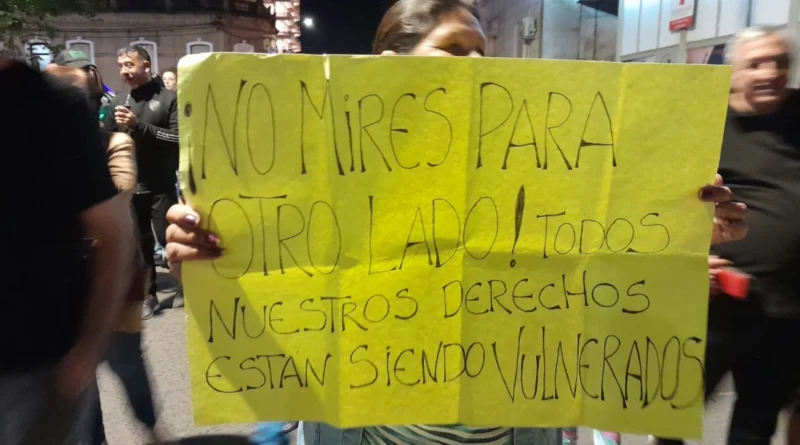 ¡NO MIRES PARA
OTRO LADO! TODOS
NUESTROS DERECHOS
ESTAN SIENDO VULNERADOS